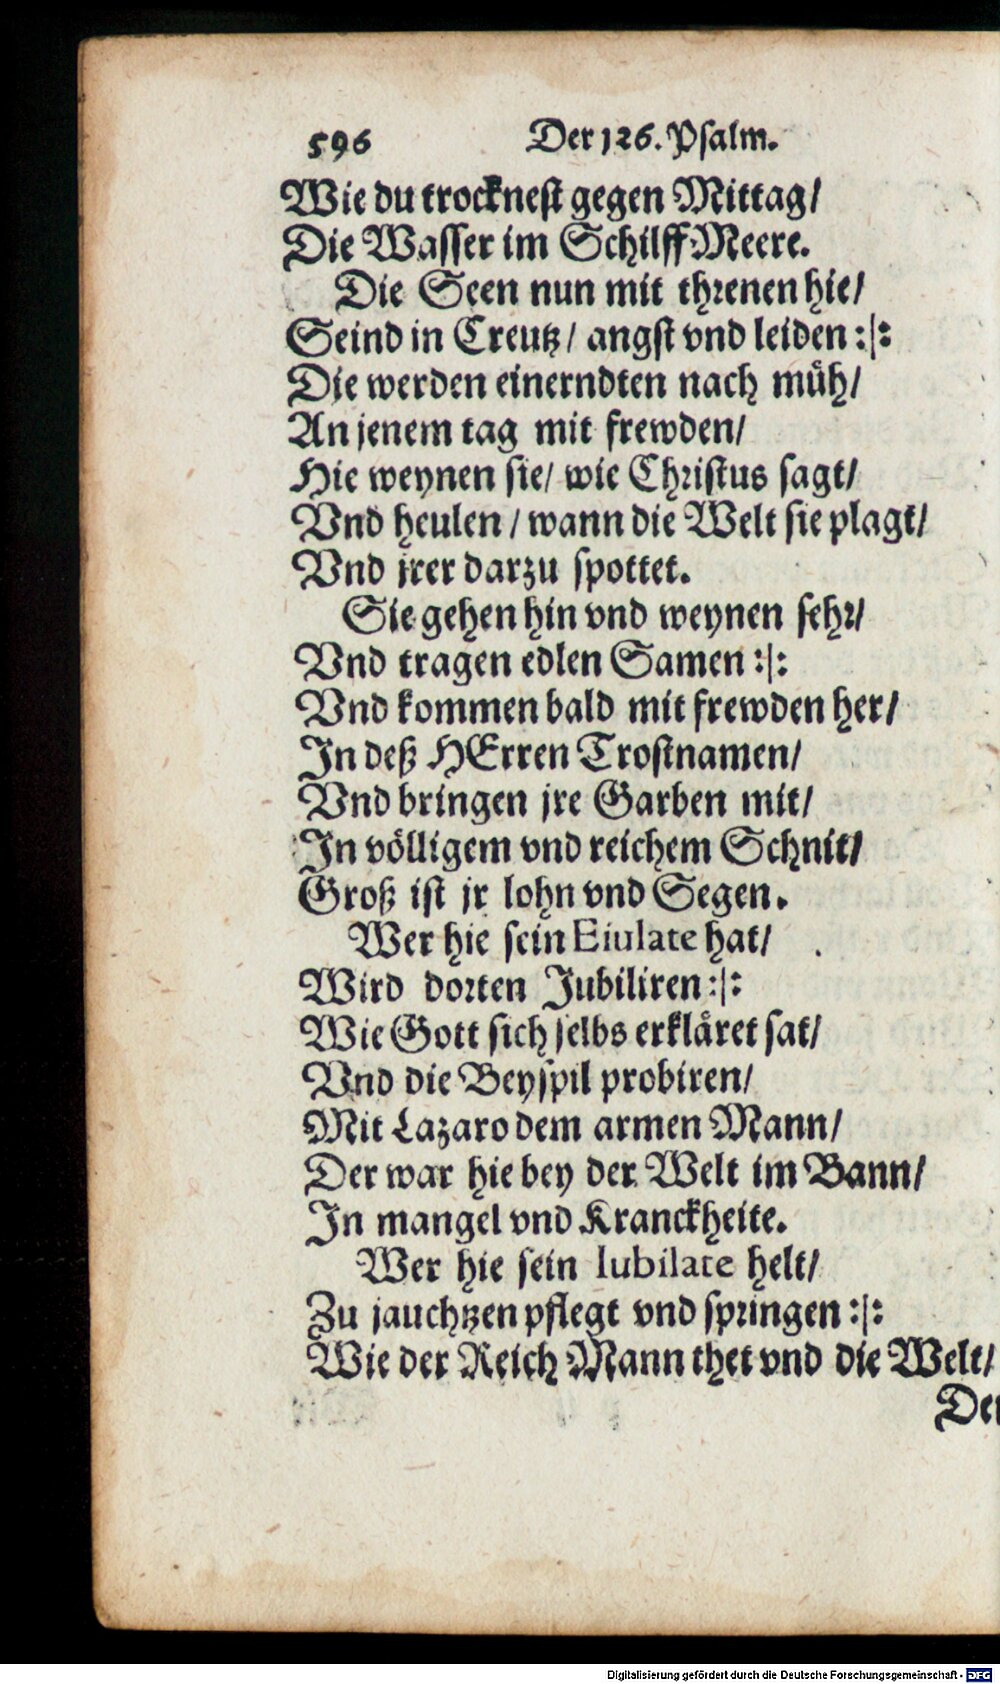 596 Der 126. Psalm.
Wie du trocknest gegen Mittag/
Die Wasser im Schilff-Meere.
Die Seen nun mit threnen hie/
Seind in Creutz/ angst vnd leiden :|:
Die werden einerndten nach müh/
An jenem tag mit frewden/
Hie weynen sie/ wie Christus sagt/
Vnd heulen / wann die Welt sie plagt/
Vnd jrer darzu spottet.
Sie gehen hin vnd weynen sehr/
Vnd tragen edlen Samen :|:
Vnd kommen bald mit frewden her/
In deß HErren Trostnamen/
Vnd bringen jre Garben mit/
In völligem vnd reichem Schnit/
Groß ist jr lohn vnd Segen.
Wer hie sein Eiulate hat/
Wird dorten Jubiliren :|:
Wie Gott sich selbs erkläret sat/
Vnd die Beyspil probiren/
Mit Lazaro dem armen Mann/
Der war hie bey der Welt im Bann/
In mangel vnd Kranckheite.
Wer hie sein Iubilate helt/
Zu jauchtzen pflegt vnd springen :|:
Wie der Reich Mann thet vnd die Welt/
Der
Digitalisierung gefördert durch die Deutsche Forschungsgemeinschaft - DFG